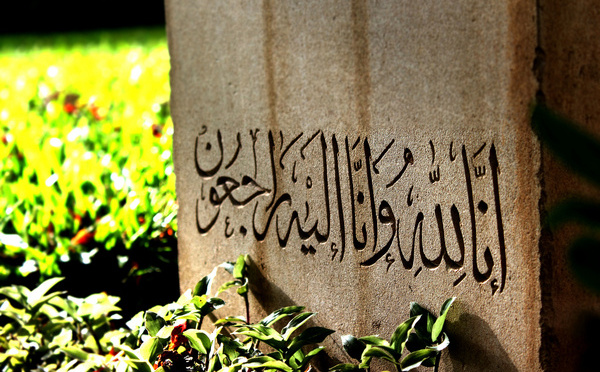 إنا لله وإنا إليه راجعون